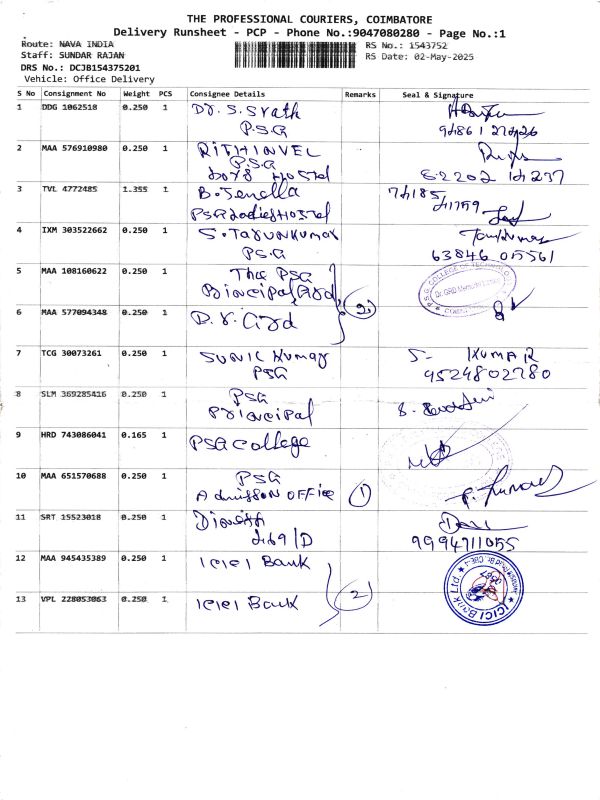 THE PROFESSIONAL COURIERS, COIMBATORE
Delivery Runsheet - PCP - Phone No.:9047080280 - Page No.:1
Route: NAVA INDIA
RS No.: 1543752
Staff: SUNDAR RAJAN
RS Date: 02-May-2025
DRS No.: DCJB154375201
Vehicle: Office Delivery
S No Consignment No Weight PCS Consignee Details Remarks Seal & Signature
1 DDG 1062518 0.250 1 Dr. S. Srath
P.S.G
2 MAA 576910980 0.250 1 RITHINVEL
P.S.G
Boys Hostel 82202 14237
3 TVL 4772485 1.355 1 B. Jenella 74185
PSG Ladies Hostel 41759
4 IXM 303522662 0.250 1 S. Tarunkumar
P.S.G 63846 015561
5 MAA 108160622 0.250 1 The PSG
Principal
6 MAA 577094348 0.250 1
P.S.G. COLLEGE OF TECHNOLO
Dr. GRD Memorial
7 TCG 30073261 0.250 1 SUNIL Kumar S- KUMAR
PSG 9524802780
8 SLM 369285416 0.250 1 PSG
Principal
9 HRD 743086041 0.165 1 PSG College
10 MAA 651570688 0.250 1 PSG
Admisson OFFICE 1
11 SRT 15523018 0.250 1 Dinesh
269/D 9994711055
12 MAA 945435389 0.250 1 ICICI Bank
2
13 VPL 228053063 0.250 1 ICICI Bank
ICICI Bank Ltd